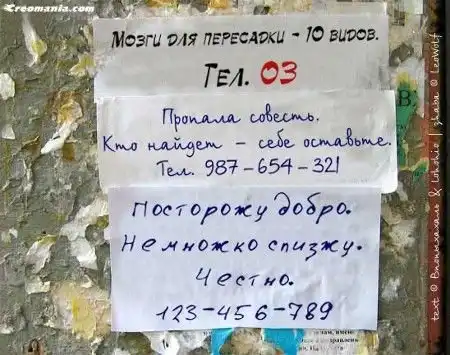 Creomania.com
Мозги для пересадки - 10 видов.
Тел. 03
Пропала совесть.
Кто найдет - себе оставьте.
Тел. 987-654-321
Посторожу добро.
Немножко спизжу.
Честно.
123-456-789
text © Впопыхахаль & lohohlo | zhaba © LeoWolf